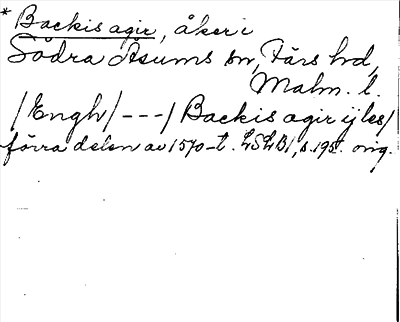 * Backis agir, åker i
Södra Åsums sn, Färs hd,
Malm. l.
/Engh/ --- / Backis agir ij les/
förra delen av 1570-t. LSLB1, s. 195. orig.